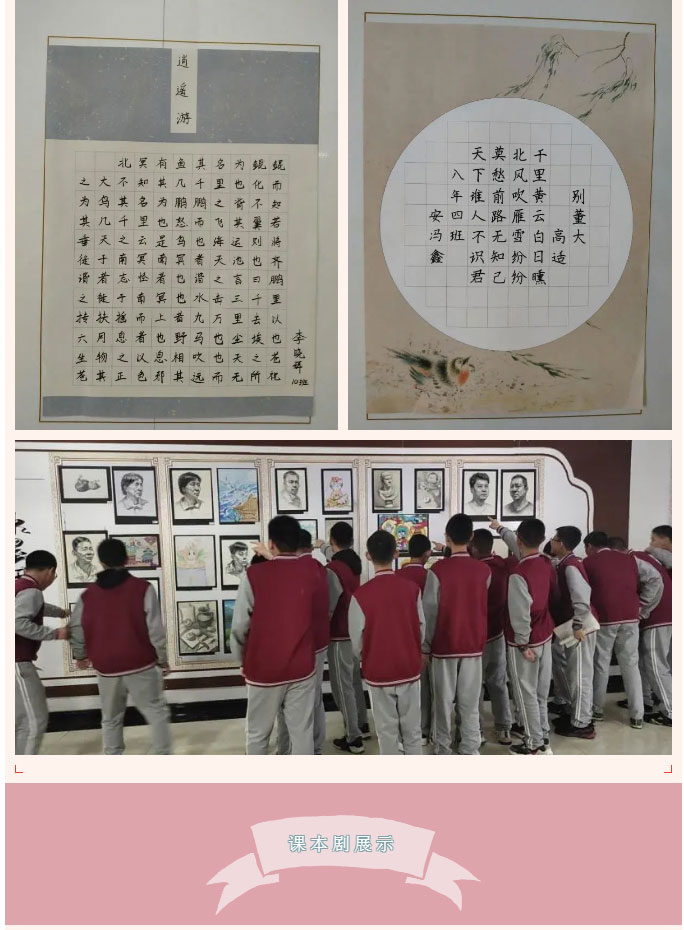 逍遥游
北冥有鱼其名为鲲鲲
之大不知其几千里也化而
为鸟其名为鹏鹏之背不知
其几千里也怒而飞其翼若
垂天之云是鸟也海运则将
徙于南冥南冥者天池也齐
谐者志怪者也谐之言曰鹏
之徙于南冥也水击三千里
抟扶摇而上者九万里去以
六月息者也野马也尘埃也
生物之以息相吹也天之苍
苍其正色邪其远而无所极
10班
别董大
高适
千里黄云白日曛
北风吹雁雪纷纷
莫愁前路无知己
天下谁人不识君
八年四班
安冯鑫
课本剧展示